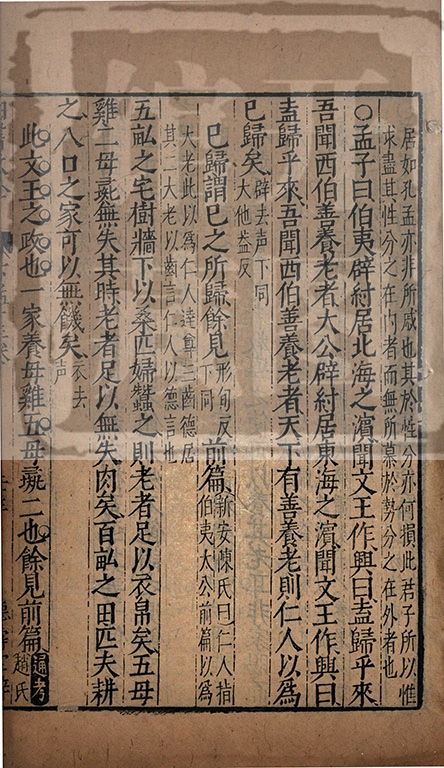 居如孔孟亦非所慼也其於性分亦何損此君子所以惟
求盡其性分之在内者而無所慕於勢分之在外者也
○孟子曰伯夷辟紂居北海之濵聞文王作興曰盍歸乎來
吾聞西伯善養老者大公辟紂居東海之濵聞文王作興曰
盍歸乎來吾聞西伯善養老者天下有善養老則仁人以爲
已歸矣辟去声下同
大他盖反
已歸謂已之所歸餘見形甸反下同前篇新安陳氏曰仁人指伯夷太公前篇以爲
大老此以爲仁人達尊三齒德居
其二大老以齒言仁人以德言也
五畝之宅樹牆下以桑匹婦蠶之則老者足以衣帛矣五母
雞二母彘無失其時老者足以無失肉矣百畝之田匹夫耕
之八口之家可以無饑矣衣去声
此文王之政也一家養母雞五母彘二也餘見前篇通考趙氏